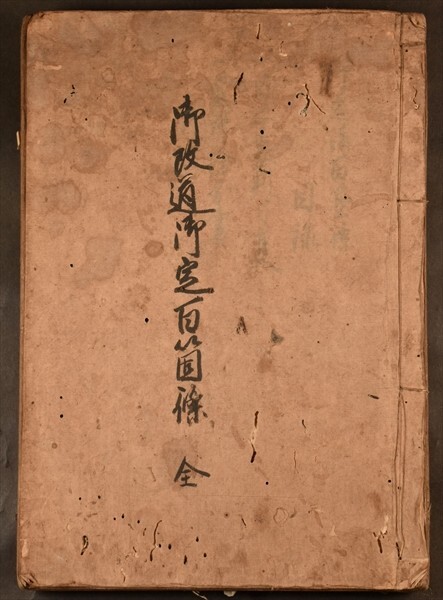 御政道御定百箇條 全